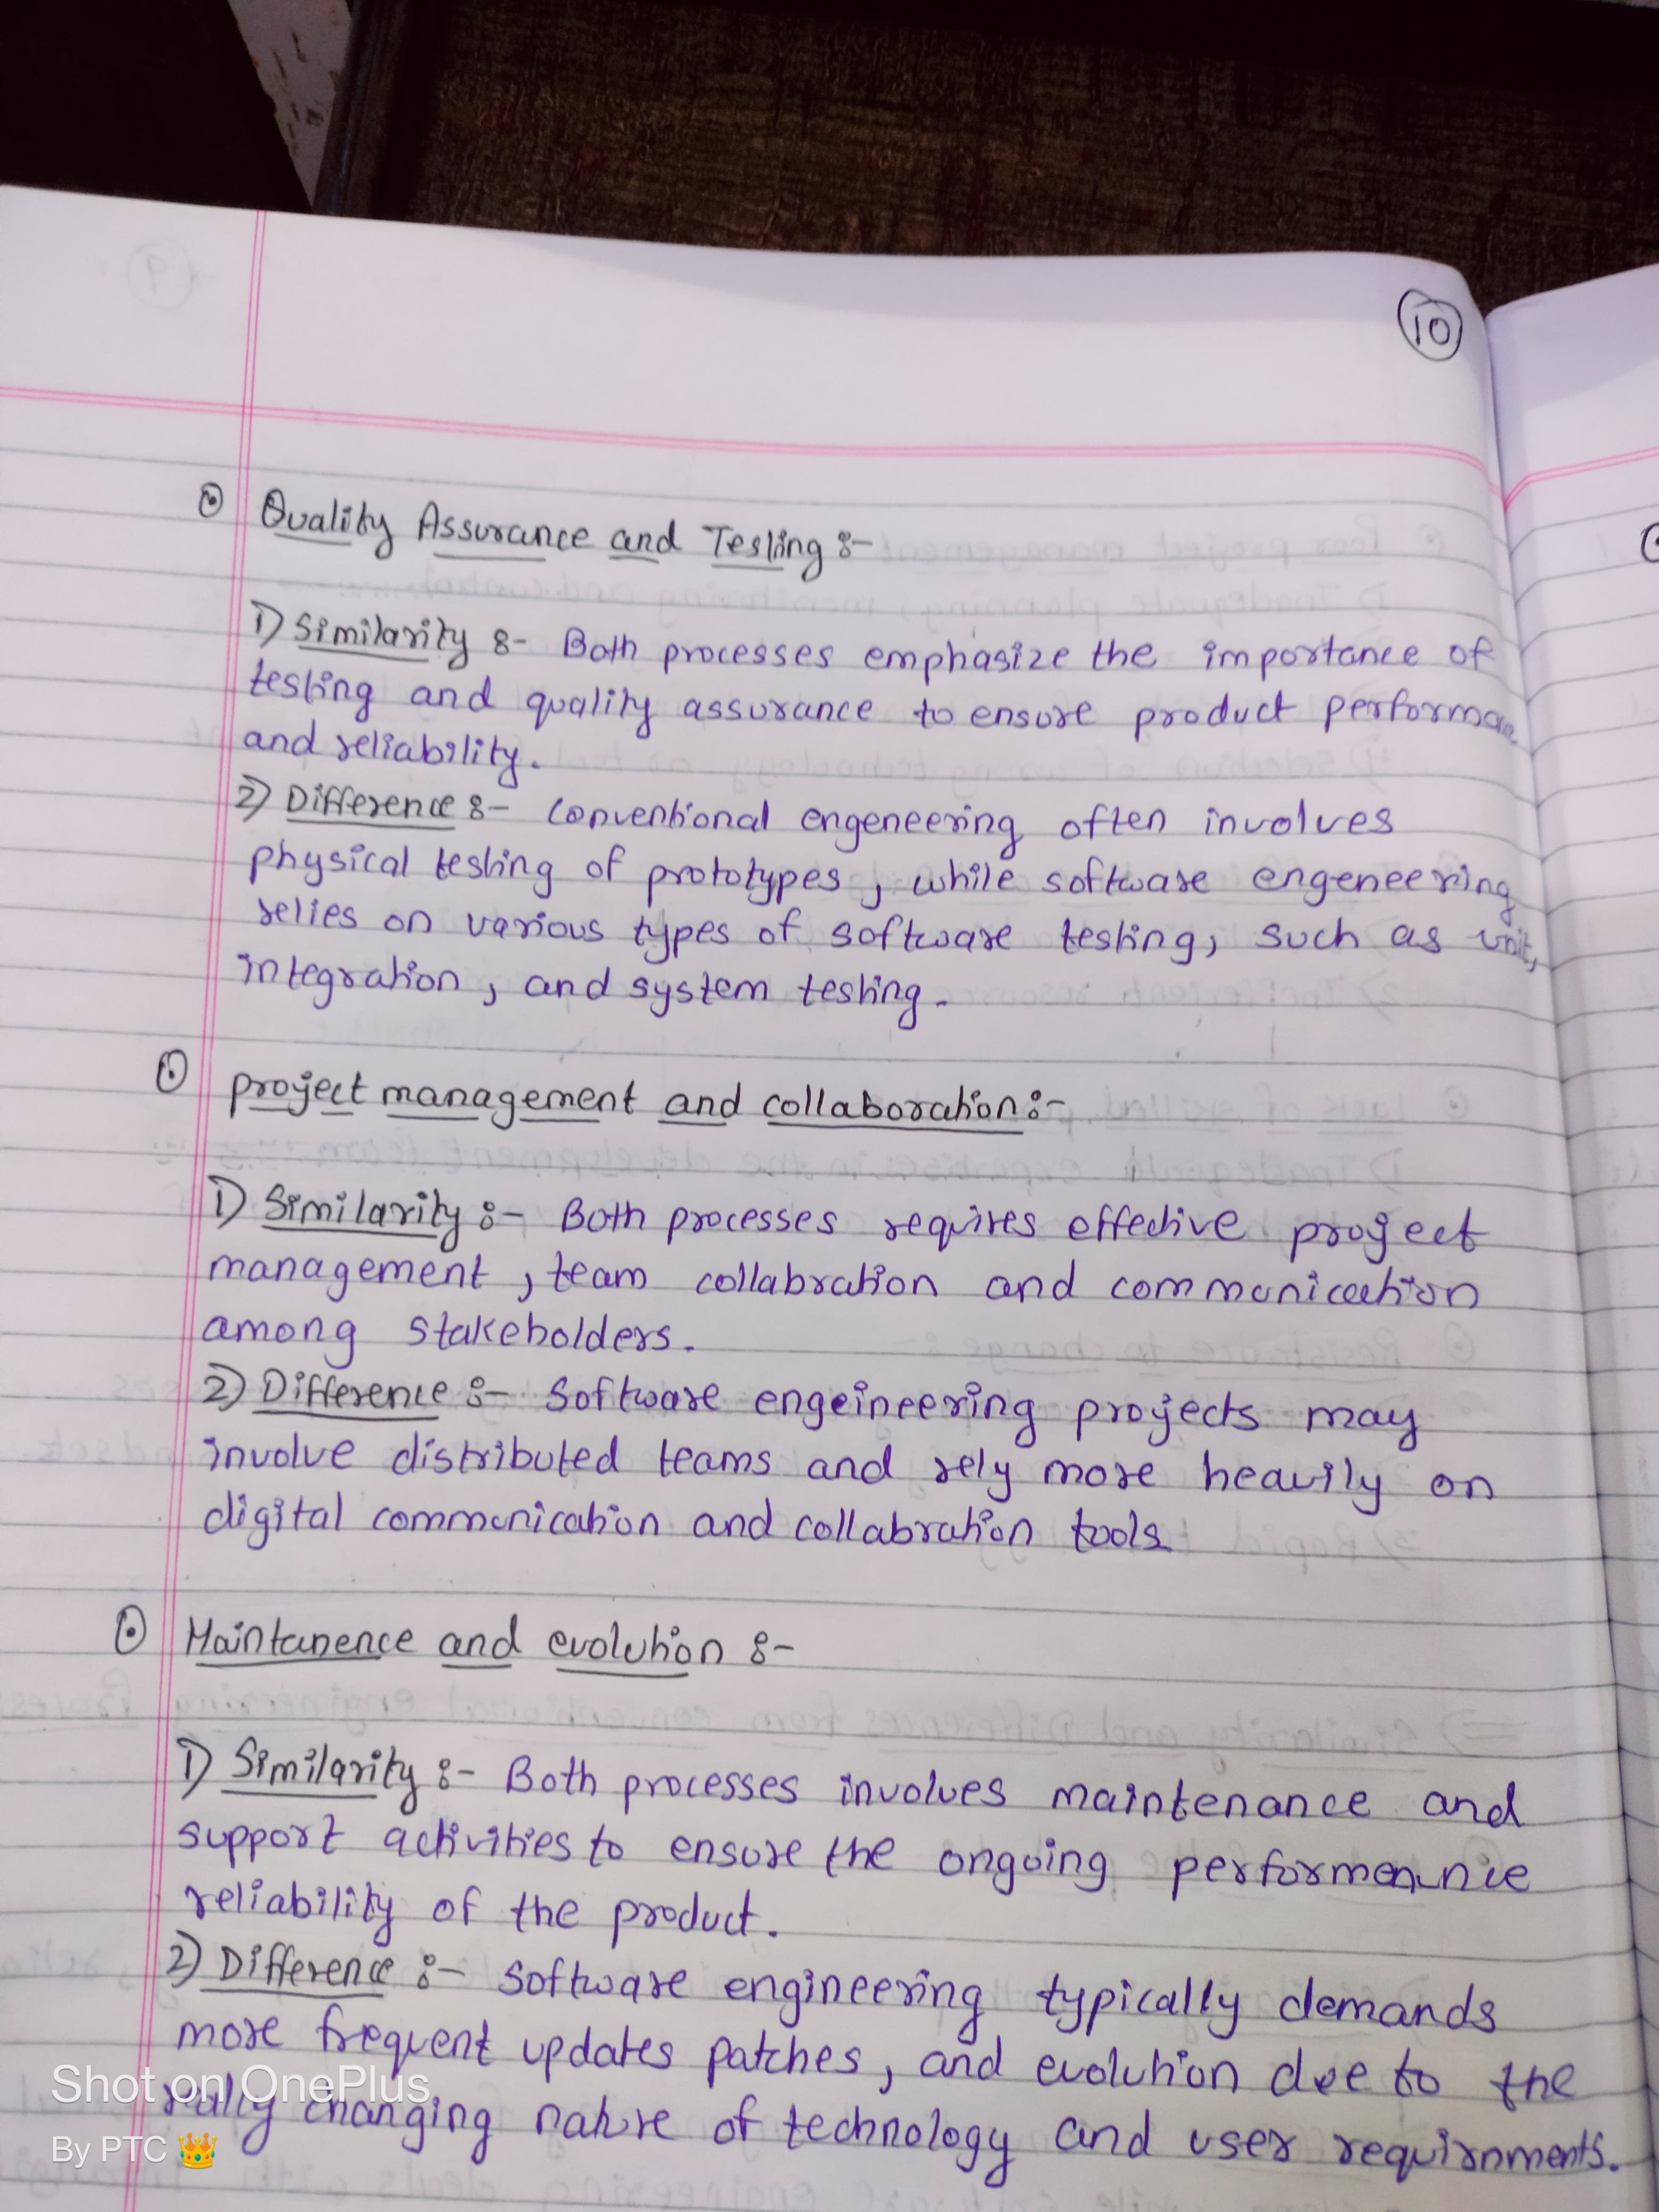 10
Quality Assurance and Testing :-
1) Similarity :- Both processes emphasize the importance of
testing and quality assurance to ensure product performa
and reliability.
2) Difference :- Conventional engeneering often involves
physical testing of prototypes, while software engeneering
relies on various types of software testing, such as unit,
integration, and system testing.
project management and collaboration :-
1) Similarity :- Both processes requires effective project
management, team collabration and communication
among stakeholders.
2) Difference :- Software engeineering projects may
involve distributed teams and rely more heavily on
digital communication and collabration tools
Maintanence and evolution :-
1) Similarity :- Both processes involves maintenance and
support activities to ensure the ongoing
reliability of the product.
2) Difference :- Software engineering typically demands
more frequent updates patches, and evolution due to the
changing nature of technology and user requirnments.
Shot on OnePlus
By PTC 👑